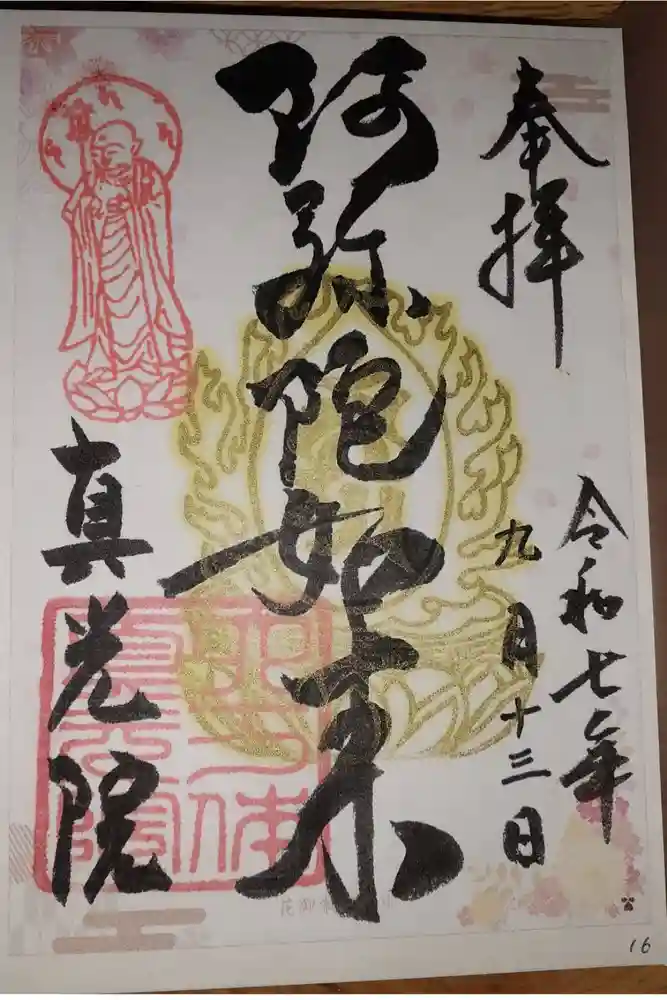 奉拝
令和七年
九月十三日
阿弥陀如来
真光院
16